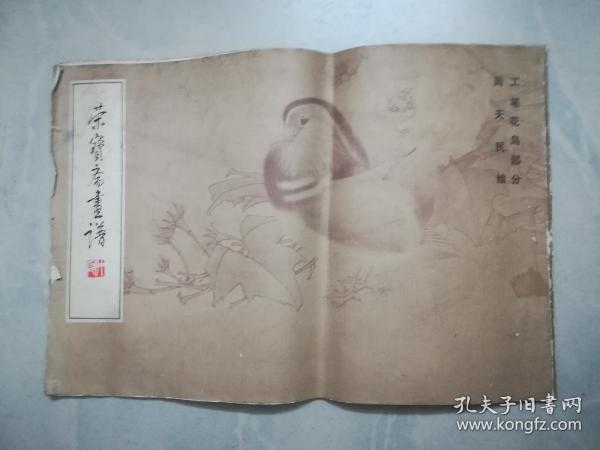 荣寶斋畫谱
工笔花鸟部分
周天民绘
孔夫子旧书网
www.kongfz.com